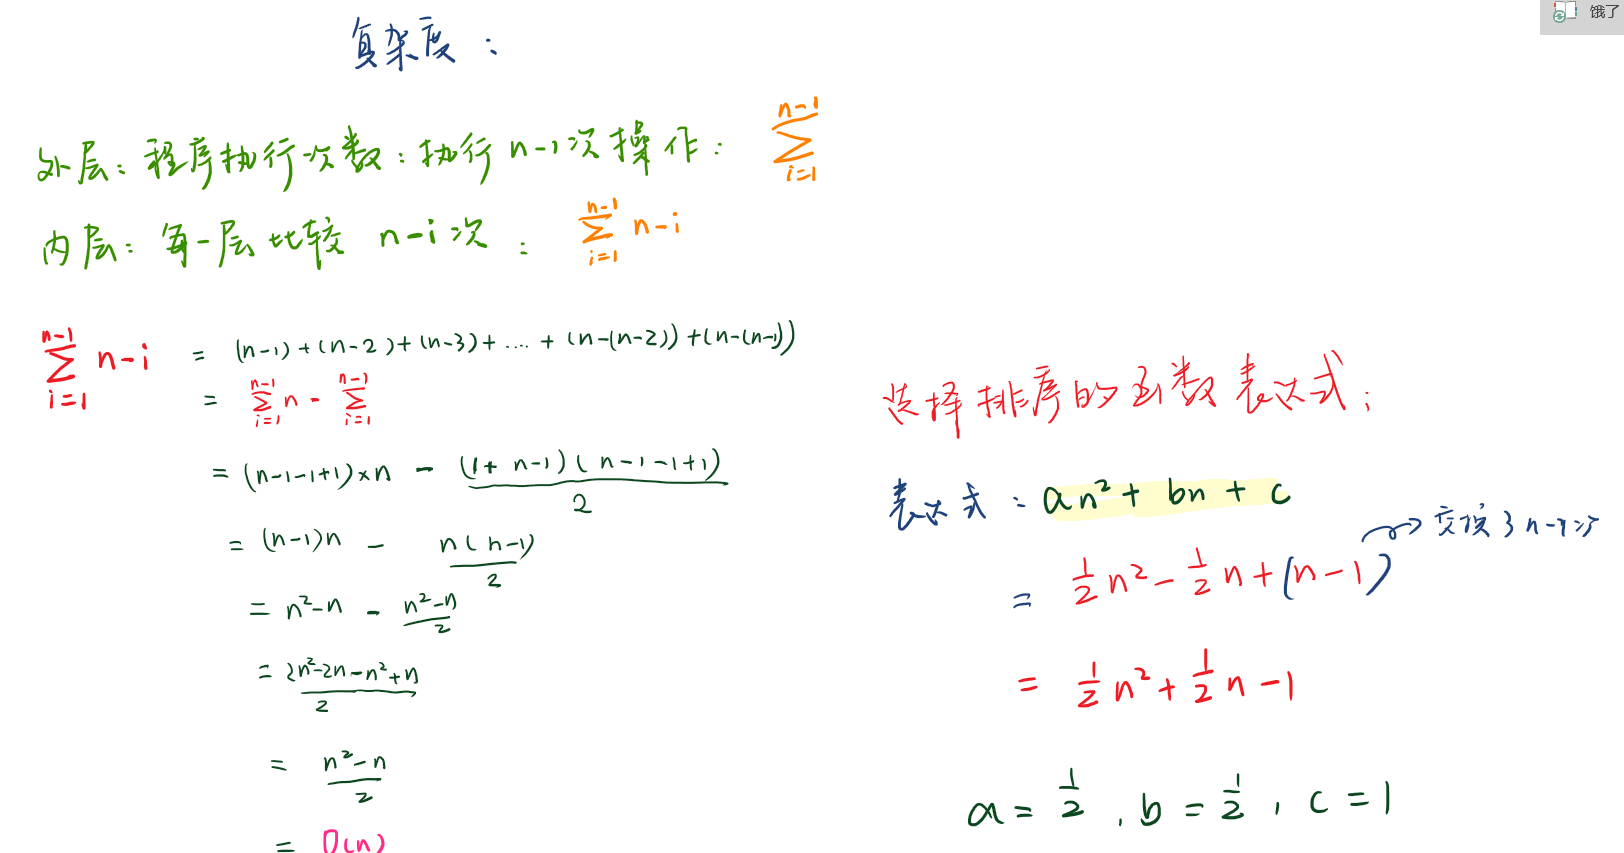 饿了
复杂度：
外层：程序执行次数：执行 n-1次操作： \sum_{i=1}^{n-1}
内层：每一层比较 n-i次： \sum_{i=1}^{n-1} n-i
\sum_{i=1}^{n-1} n-i = (n-1)+(n-2)+(n-3)+....+(n-(n-2))+(n-(n-1))
= \sum_{i=1}^{n-1} n - \sum_{i=1}^{n-1}
= (n-1-1+1)×n - \frac{(1+n-1)(n-1-1+1)}{2}
= (n-1)n - \frac{n(n-1)}{2}
= n²-n - \frac{n²-n}{2}
= \frac{2n²-2n-n²+n}{2}
= \frac{n²-n}{2}
= O(n)
选择排序的函数表达式：
表达式：an²+bn+c
= \frac{1}{2}n² - \frac{1}{2}n+(n-1) → 交换了n-1次
= \frac{1}{2}n² + \frac{1}{2}n-1
a=\frac{1}{2}, b=\frac{1}{2}, c=1